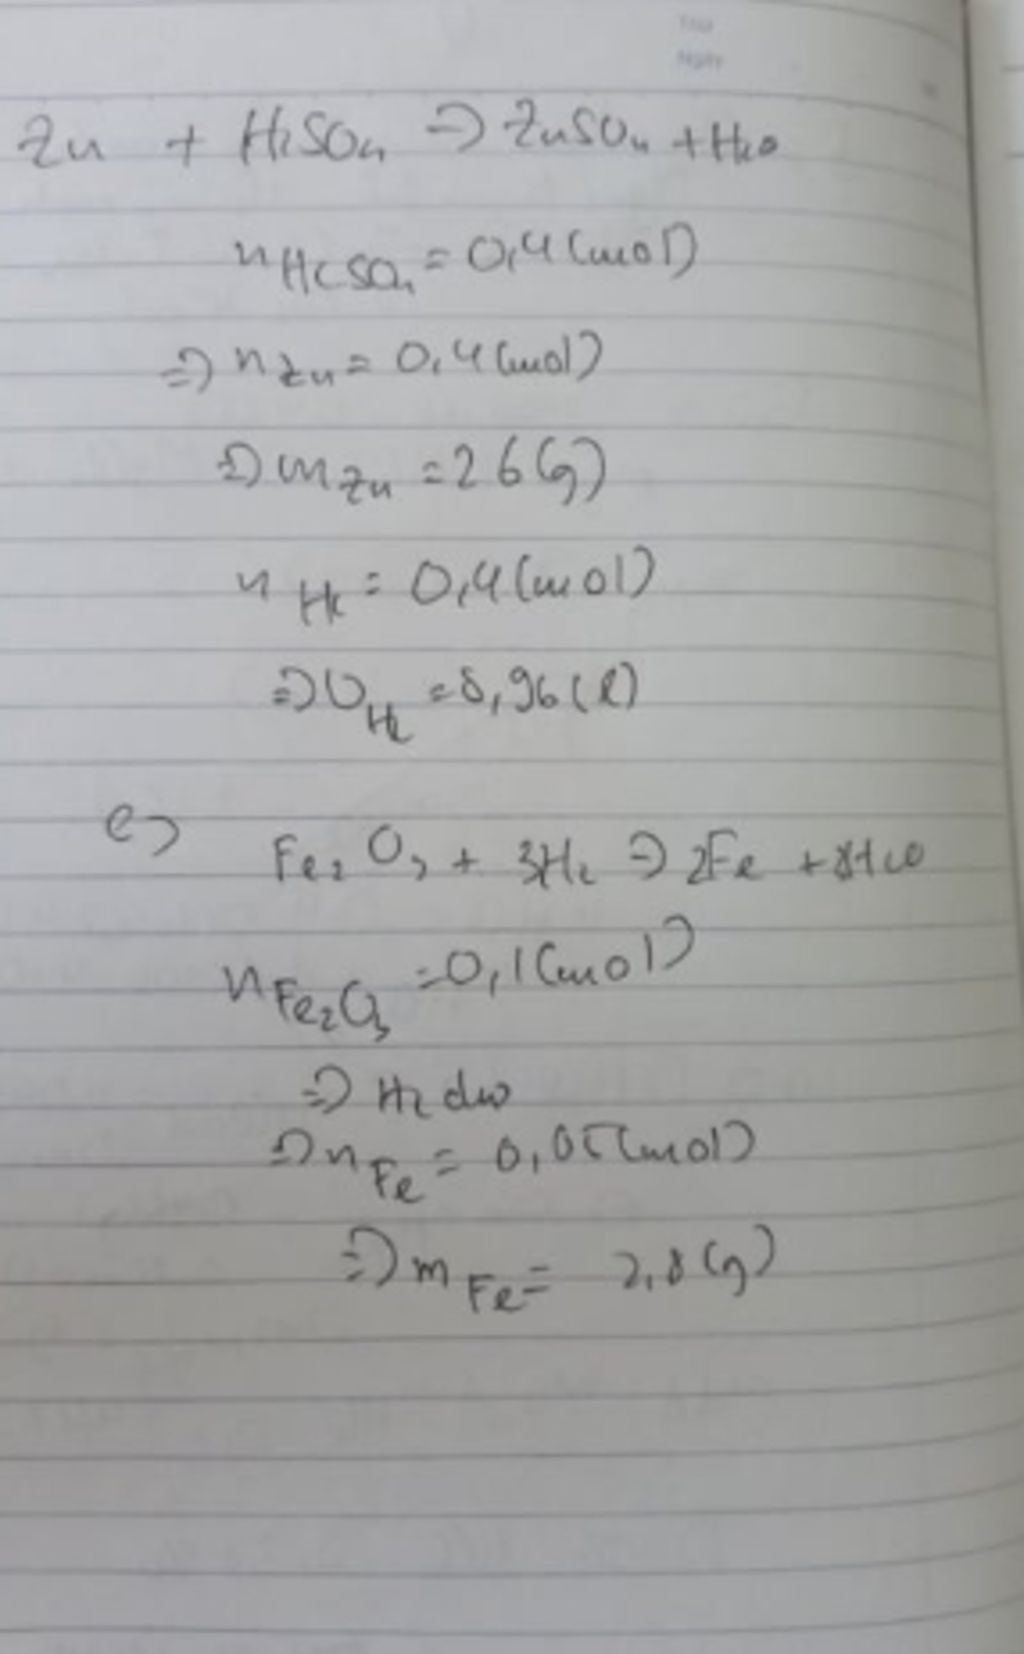 Thứ
Ngày
Zn + H2SO4 => ZnSO4 + H2O
nH2SO4 = 0,4 (mol)
=> nZn = 0,4 (mol)
=> mZn = 26 (g)
nH2 = 0,4 (mol)
=> VH2 = 8,96 (l)
c) Fe2O3 + 3H2 => 2Fe + 3H2O
nFe2O3 = 0,1 (mol)
=> H2 dư
=> nFe = 0,05 (mol)
=> mFe = 2,8 (g)